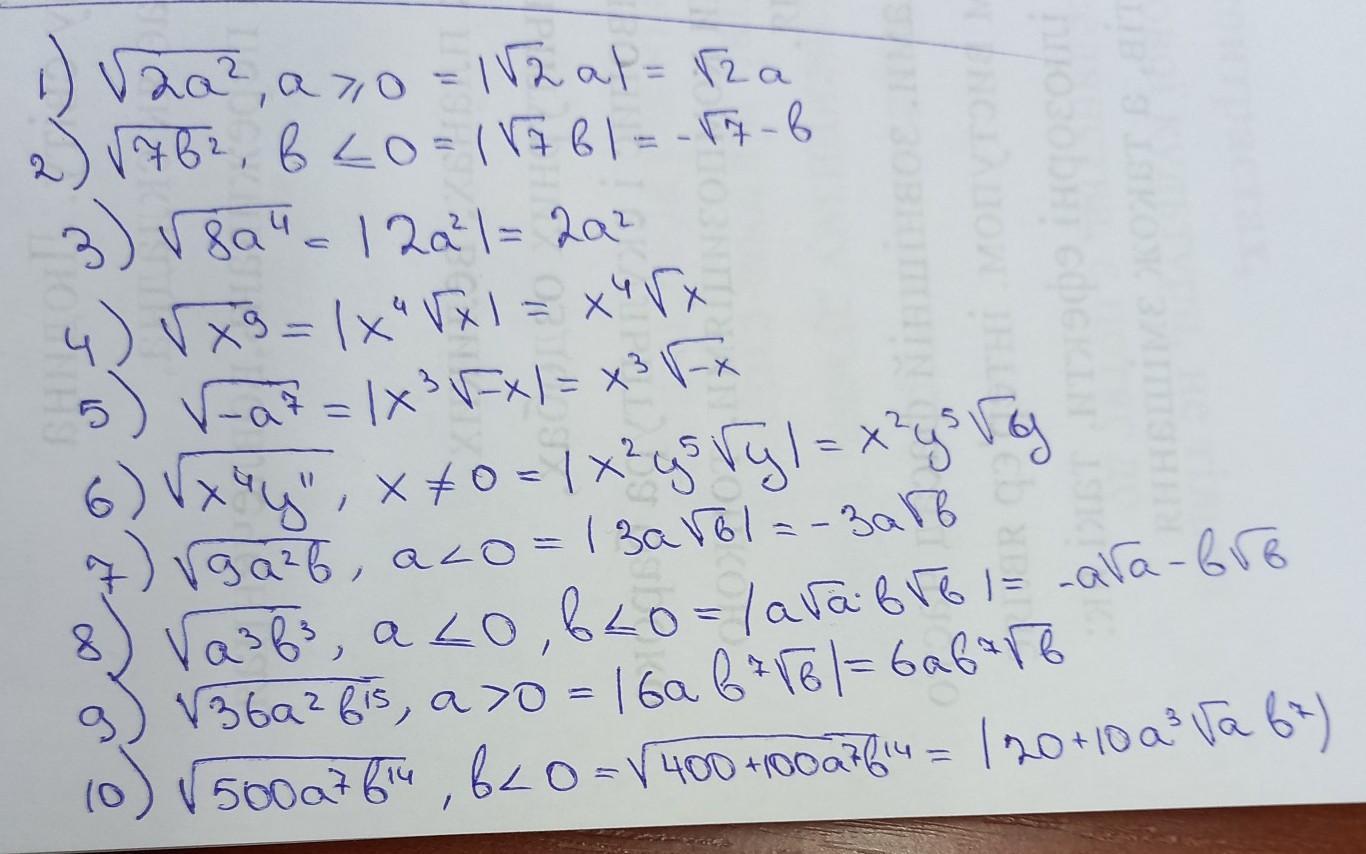 1) √2a², a ⩾ 0 = |√2 a| = √2 a
2) √7b², b ≤ 0 = |√7 b| = -√7 - b
3) √8a⁴ = |2a²| = 2a²
4) √x⁹ = |x⁴√x| = x⁴√x
5) √-a⁷ = |x³√-x| = x³√-x
6) √x⁴y¹¹, x ≠ 0 = |x²y⁵√y| = x²y⁵√y
7) √9a²b, a < 0 = |3a√b| = -3a√b
8) √a³b³, a ≤ 0, b ≤ 0 = |a√a · b√b| = -a√a - b√b
9) √36a²b¹⁵, a > 0 = |6a b⁷√b| = 6ab⁷√b
10) √500a⁷b¹⁴, b < 0 = √400+100a⁷b¹⁴ = |20+10a³√a b⁷)